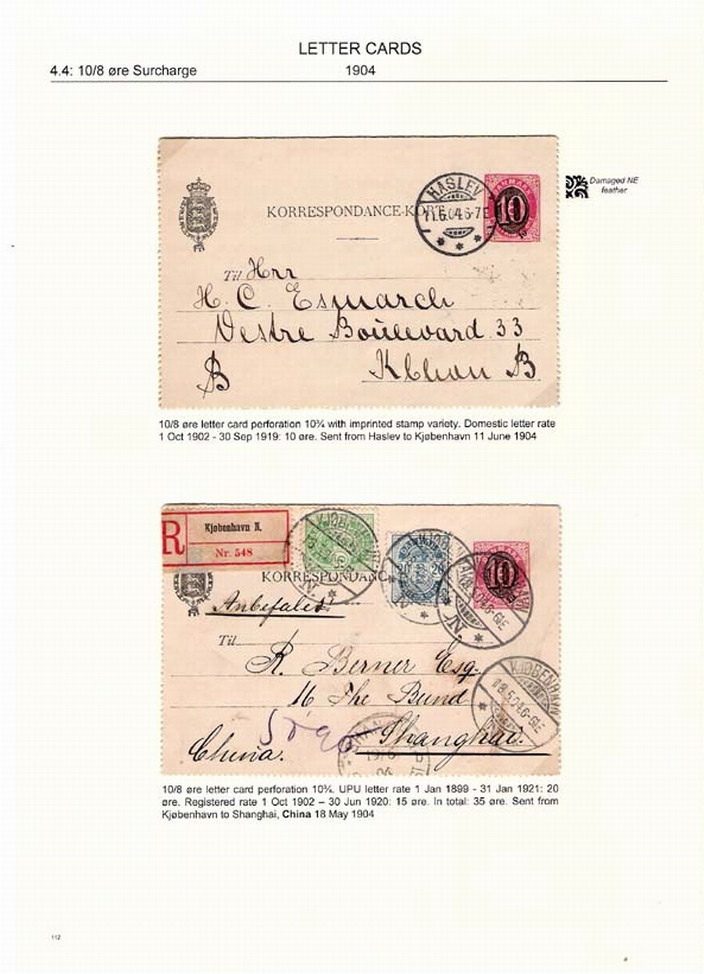 LETTER CARDS
4.4: 10/8 øre Surcharge 1904
Damaged NE
feather
HASLEV
11.6.04.6-7E
DANMARK
10
KORRESPONDANCE-KORT
Til Hrr
H. C. Esmarch
Vestre Boulevard 33
B Kbhavn B
10/8 øre letter card perforation 10¾ with imprinted stamp variety. Domestic letter rate
1 Oct 1902 - 30 Sep 1919: 10 øre. Sent from Haslev to Kjøbenhavn 11 June 1904
R
Kjøbenhavn N.
Nr. 548
20
10
KORRESPONDANC
Anbefales
KJØBENHAVN
18.5.04.6-6½E
Til
R. Berner Esq.
16 The Bund
Shanghai.
China.
10/8 øre letter card perforation 10¾. UPU letter rate 1 Jan 1899 - 31 Jan 1921: 20
øre. Registered rate 1 Oct 1902 – 30 Jun 1920: 15 øre. In total: 35 øre. Sent from
Kjøbenhavn to Shanghai, China 18 May 1904
112